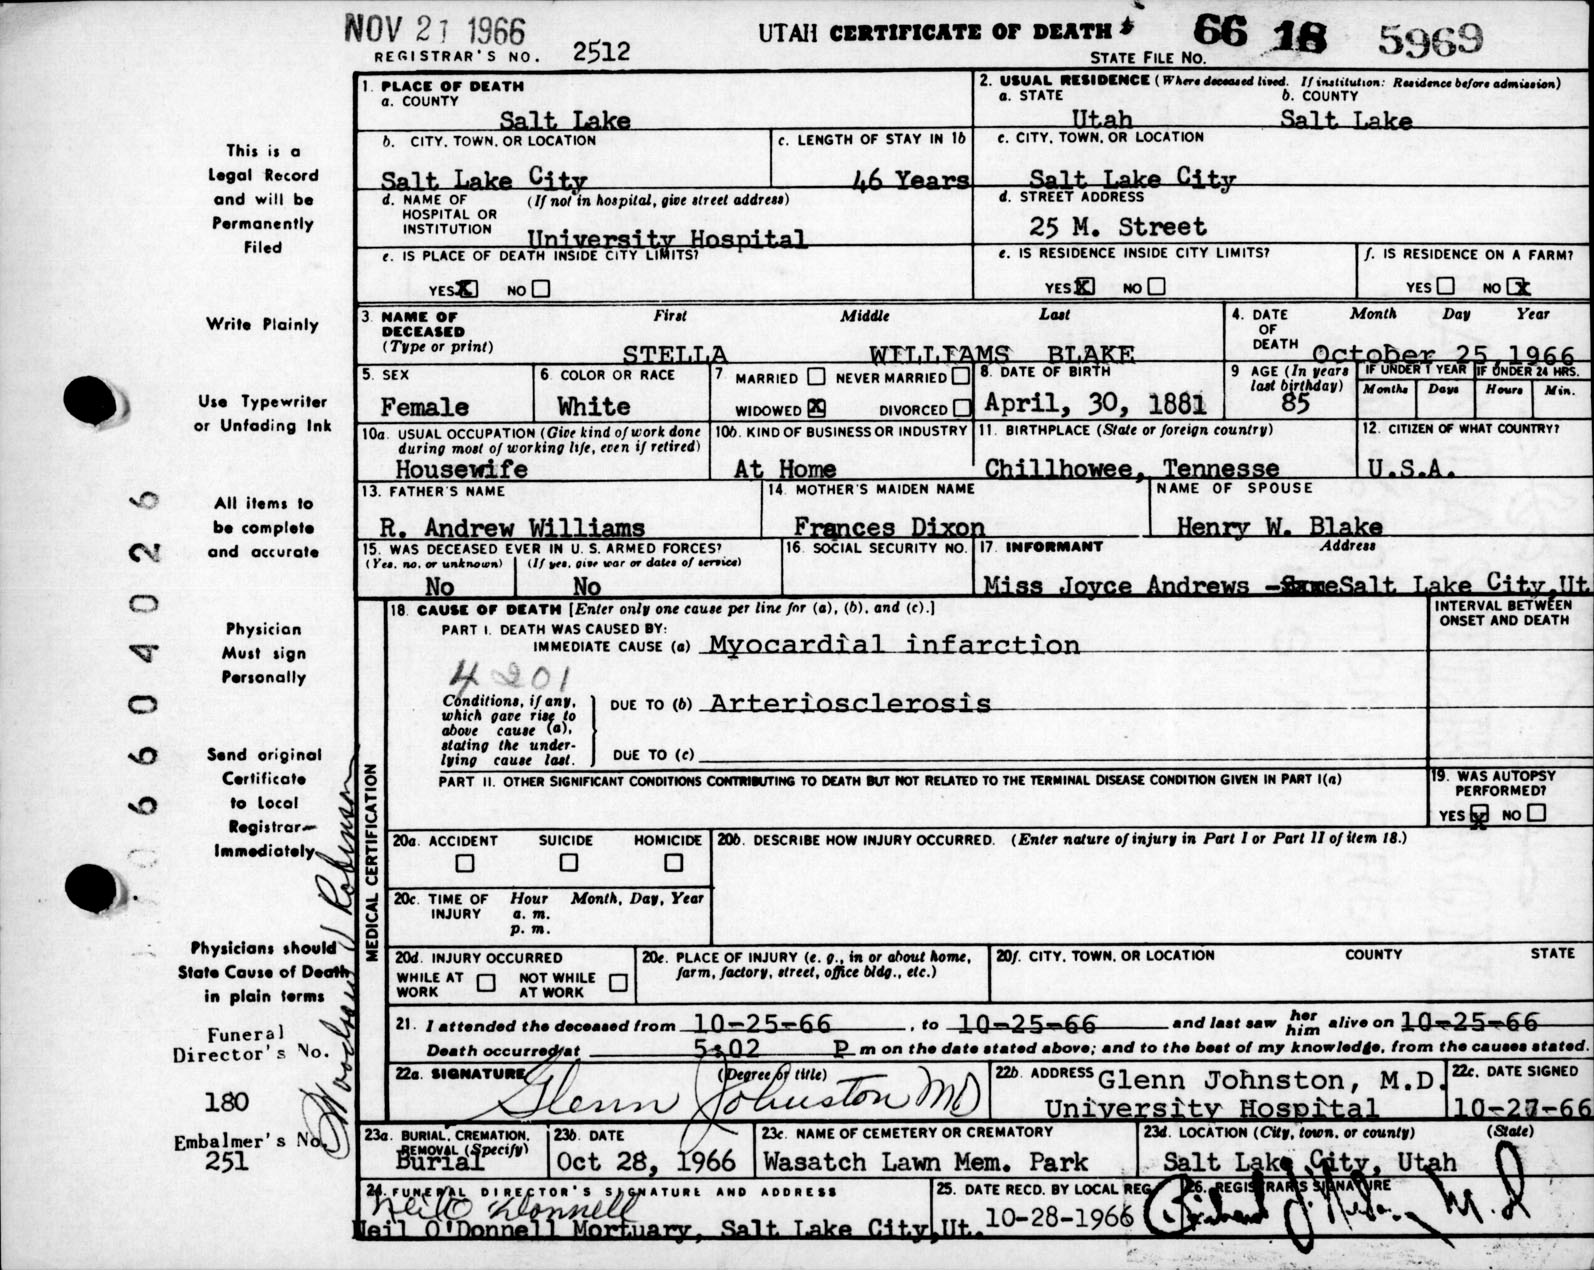 NOV 21 1966
UTAH CERTIFICATE OF DEATH
66 18 5969
REGISTRAR'S NO. 2512
STATE FILE NO.
This is a
Legal Record
and will be
Permanently
Filed
Write Plainly
Use Typewriter
or Unfading Ink
All items to
be complete
and accurate
Physician
Must sign
Personally
Send original
Certificate
to Local
Registrar—
Immediately
Physicians should
State Cause of Death
in plain terms
Funeral
Director's No.
180
Embalmer's No.
251
Woodrow J Robinson
0660 4026
1. PLACE OF DEATH
a. COUNTY
Salt Lake
2. USUAL RESIDENCE (Where deceased lived. If institution: Residence before admission)
a. STATE b. COUNTY
Utah Salt Lake
b. CITY, TOWN, OR LOCATION
Salt Lake City
c. LENGTH OF STAY IN 1b
46 Years
c. CITY, TOWN, OR LOCATION
Salt Lake City
d. NAME OF HOSPITAL OR INSTITUTION (If not in hospital, give street address)
University Hospital
d. STREET ADDRESS
25 M. Street
e. IS PLACE OF DEATH INSIDE CITY LIMITS?
YES X NO
e. IS RESIDENCE INSIDE CITY LIMITS?
YES X NO
f. IS RESIDENCE ON A FARM?
YES NO X
3. NAME OF DECEASED (Type or print)
First Middle Last
STELLA WILLIAMS BLAKE
4. DATE OF DEATH Month Day Year
October 25, 1966
5. SEX
Female
6. COLOR OR RACE
White
7 MARRIED NEVER MARRIED
WIDOWED X DIVORCED
8. DATE OF BIRTH
April, 30, 1881
9 AGE (In years last birthday)
85
IF UNDER 1 YEAR IF UNDER 24 HRS.
Months Days Hours Min.
10a. USUAL OCCUPATION (Give kind of work done during most of working life, even if retired)
Housewife
10b. KIND OF BUSINESS OR INDUSTRY
At Home
11. BIRTHPLACE (State or foreign country)
Chillhowee, Tennesse
12. CITIZEN OF WHAT COUNTRY?
U.S.A.
13. FATHER'S NAME
R. Andrew Williams
14. MOTHER'S MAIDEN NAME
Frances Dixon
NAME OF SPOUSE
Henry W. Blake
15. WAS DECEASED EVER IN U. S. ARMED FORCES?
(Yes, no, or unknown) (If yes, give war or dates of service)
No No
16. SOCIAL SECURITY NO.
17. INFORMANT Address
Miss Joyce Andrews -Same Salt Lake City, Ut
MEDICAL CERTIFICATION
18. CAUSE OF DEATH [Enter only one cause per line for (a), (b), and (c).]
INTERVAL BETWEEN
ONSET AND DEATH
PART I. DEATH WAS CAUSED BY:
IMMEDIATE CAUSE (a) Myocardial infarction
4201
Conditions, if any, which gave rise to above cause (a), stating the underlying cause last.
DUE TO (b) Arteriosclerosis
DUE TO (c)
PART II. OTHER SIGNIFICANT CONDITIONS CONTRIBUTING TO DEATH BUT NOT RELATED TO THE TERMINAL DISEASE CONDITION GIVEN IN PART I(a)
19. WAS AUTOPSY PERFORMED?
YES X NO
20a. ACCIDENT SUICIDE HOMICIDE
20b. DESCRIBE HOW INJURY OCCURRED. (Enter nature of injury in Part I or Part II of item 18.)
20c. TIME OF INJURY Hour Month, Day, Year
a. m.
p. m.
20d. INJURY OCCURRED
WHILE AT WORK NOT WHILE AT WORK
20e. PLACE OF INJURY (e. g., in or about home, farm, factory, street, office bldg., etc.)
20f. CITY, TOWN, OR LOCATION COUNTY STATE
21. I attended the deceased from 10-25-66, to 10-25-66 and last saw her him alive on 10-25-66
Death occurred at 5:02 P m on the date stated above; and to the best of my knowledge, from the causes stated.
22a. SIGNATURE (Degree or title)
Glenn Johnston MD
22b. ADDRESS Glenn Johnston, M.D.
University Hospital
22c. DATE SIGNED
10-27-66
23a. BURIAL, CREMATION, REMOVAL (Specify)
Burial
23b. DATE
Oct 28, 1966
23c. NAME OF CEMETERY OR CREMATORY
Wasatch Lawn Mem. Park
23d. LOCATION (City, town, or county) (State)
Salt Lake City, Utah
24. FUNERAL DIRECTOR'S SIGNATURE AND ADDRESS
Neil O'Donnell
Neil O'Donnell Mortuary, Salt Lake City, Ut.
25. DATE RECD. BY LOCAL REG.
10-28-1966
26. REGISTRAR'S SIGNATURE
M.D